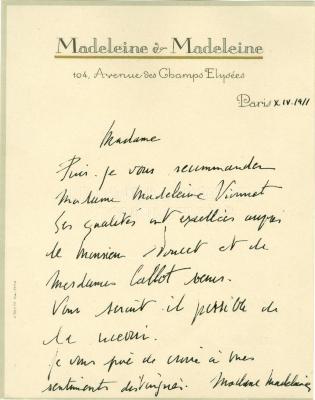 Madeleine & Madeleine
104, Avenue des Champs Elysées
Paris X.IV.1911
Madame
Puis-je vous recommander
Madame Madeleine Vionnet
Ses qualités ont excellées auprès
de Monsieur Doucet et de
Mesdames Callot soeurs.
Vous serait-il possible de
la recevoir.
Je vous prie de croire à mes
sentiments distingués. Madame Madeleine